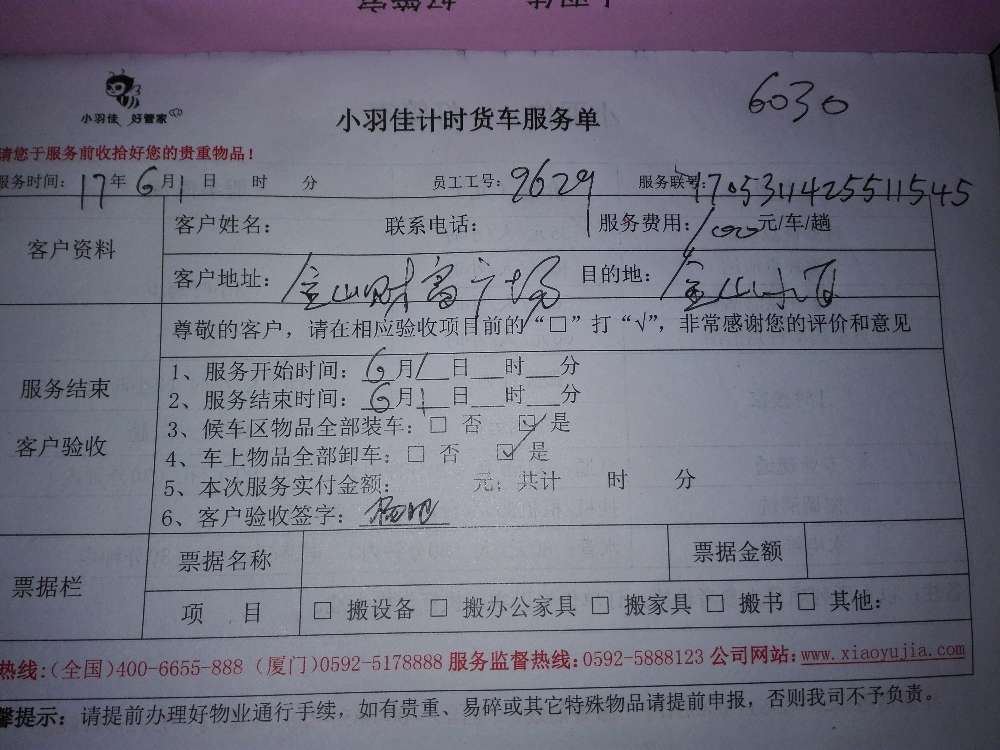 6030
小羽佳 好管家
小羽佳计时货车服务单
请您于服务前收拾好您的贵重物品!
服务时间: 17年6月1日 时 分 员工工号: 9629 服务联号: 170531142551545
客户资料
客户姓名: 联系电话: 服务费用: 元/车/趟
客户地址: 金山财富广场 目的地: 金山
服务结束
客户验收
尊敬的客户，请在相应验收项目前的“□”打“√”，非常感谢您的评价和意见
1、服务开始时间: 6月1日 时 分
2、服务结束时间: 6月1日 时 分
3、候车区物品全部装车: □ 否 ☑ 是
4、车上物品全部卸车: □ 否 ☑ 是
5、本次服务实付金额: 元; 共计 时 分
6、客户验收签字:
票据栏
票据名称 票据金额
项 目 □ 搬设备 □ 搬办公家具 □ 搬家具 □ 搬书 □ 其他:
热线:(全国)400-6655-888 (厦门)0592-5178888 服务监督热线:0592-5888123 公司网站:www.xiaoyujia.com
馨提示: 请提前办理好物业通行手续，如有贵重、易碎或其它特殊物品请提前申报，否则我司不予负责。